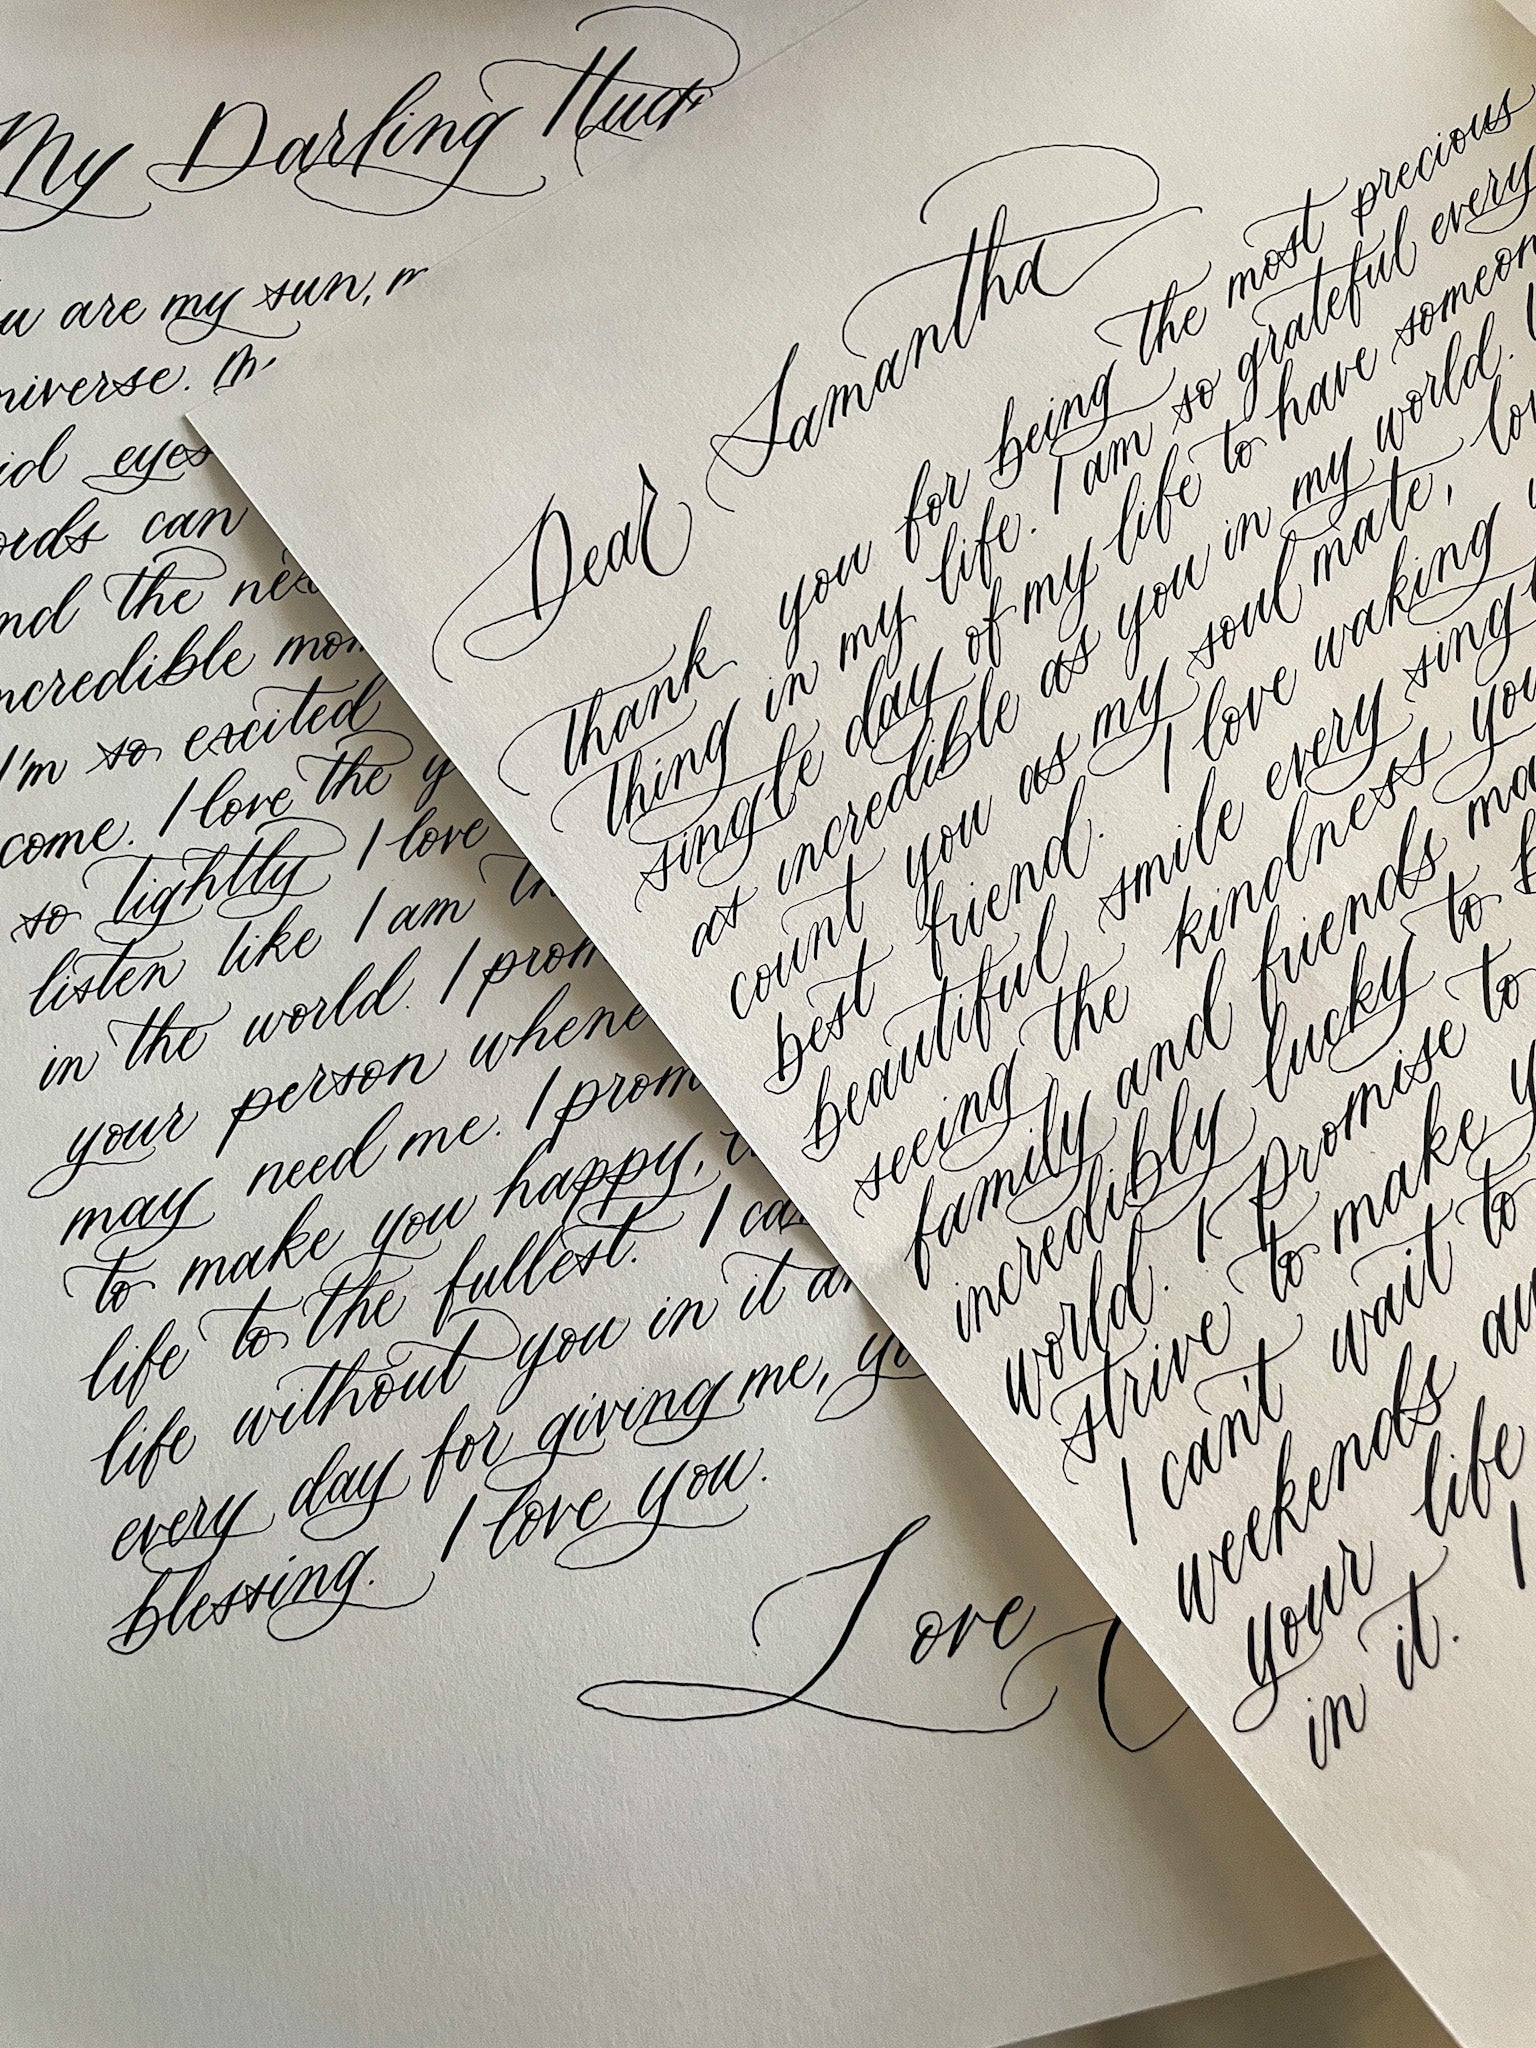 My Darling
are my sun,
eyes
can
the
incredible
I'm so excited
come. I love the
so tightly I love
listen like I am
in the world. I
your person
may need me. I
to make you happy,
life to the fullest. I
life without you in it
every day for giving me,
blessing. I love you.
Love
Dear Samantha
thank you for being the most precious
thing in my life. I am so grateful every
single day of my life to have
as incredible as you in my world.
count you as my soul mate,
best friend. I love waking
beautiful smile every
seeing the kindness
family and friends
incredibly lucky to
world. I promise to
strive to make
I can't wait to
weekends
your life
in it. I